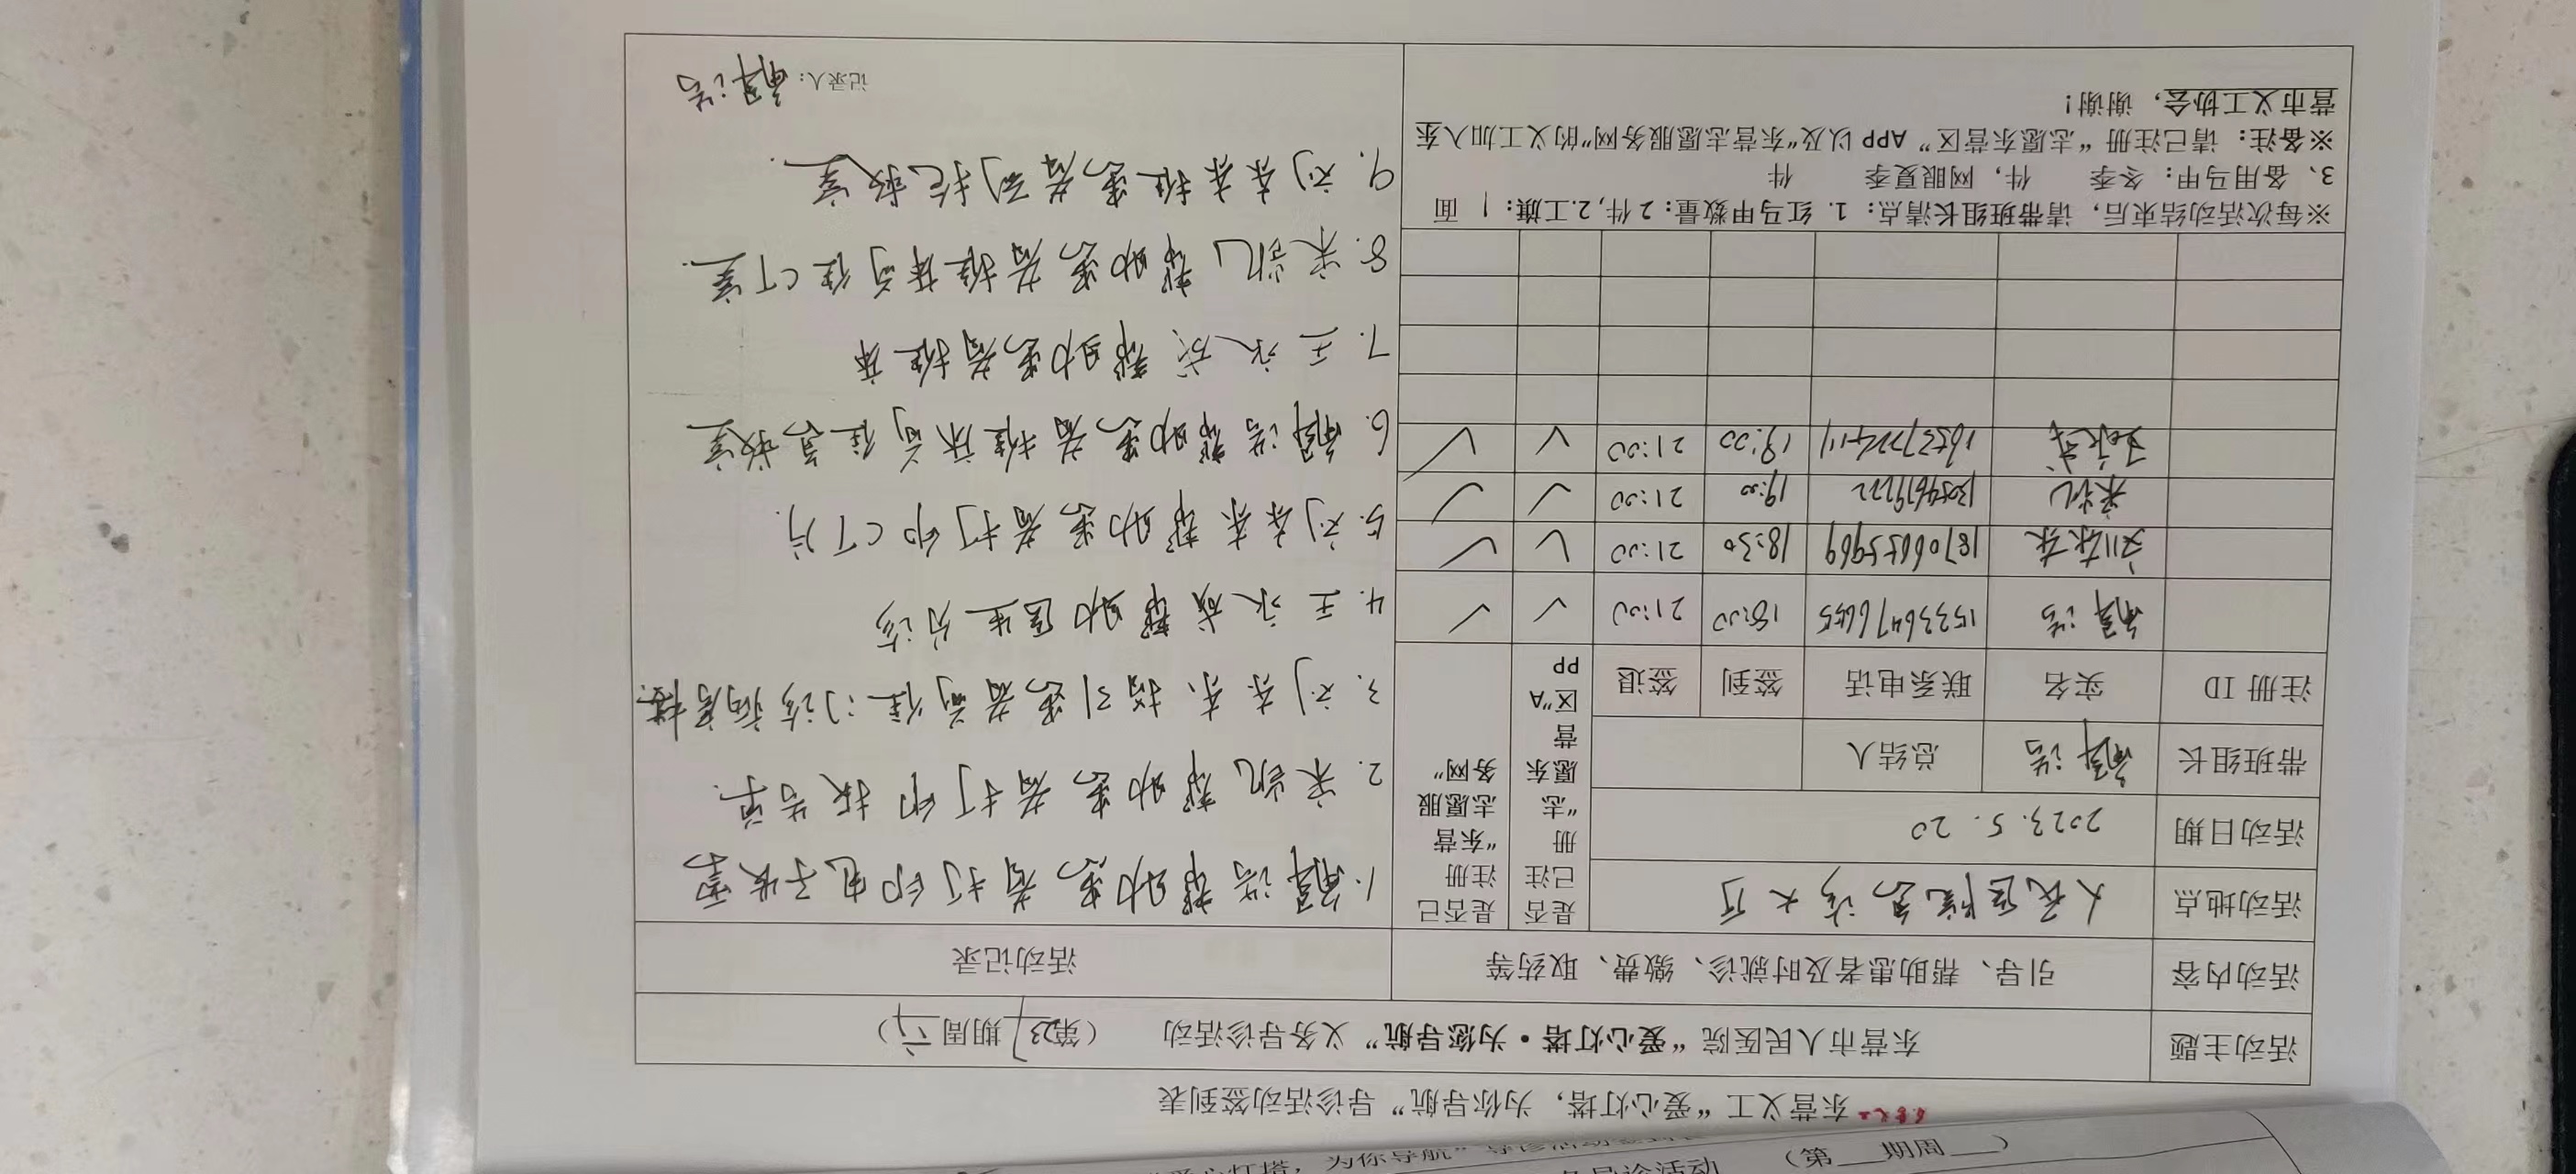 东营义工“爱心灯塔，为你导航”导诊活动签到表
活动主题 东营市人民医院“爱心灯塔·为您导航”义务导诊活动 （第237期周六）
活动内容 引导、帮助患者及时就诊、缴费、取药等 活动记录
活动地点 人民医院急诊大厅
活动日期 2023.5.20
带班组长 解浩 总结人
是否已注册“志愿东营区”APP
是否已注册“东营志愿服务网”
注册 ID 实名 联系电话 签到 签退
解浩 15336476455 18:00 21:00 ✓ ✓
刘东东 18706665969 18:30 21:00 ✓ ✓
宋凯 13054679222 19:00 21:00 ✓ ✓
王永成 19:00 21:00 ✓ ✓
※每次活动结束后，请带班组长清点：1. 红马甲数量：2件，2.工旗：1 面
3、备用马甲：冬季 件，网眼夏季 件
※备注：请已注册“志愿东营区”APP 以及“东营志愿服务网”的义工加入东
营市义工协会，谢谢！
1.解浩帮助患者打印电子发票
2.宋凯帮助患者打印报告单.
3.刘东东指引患者前往门诊病房楼.
4.王永成帮助医生分诊
5.刘东东帮助患者打印CT片.
6.解浩帮助患者推床前往急救室
7.王永成帮助患者推床
8.宋凯帮助患者推床前往CT室.
9.刘东东推患者到抢救室.
记录人：解浩
为你导航”导诊活动签到表
导诊活动 （第 期周 ）